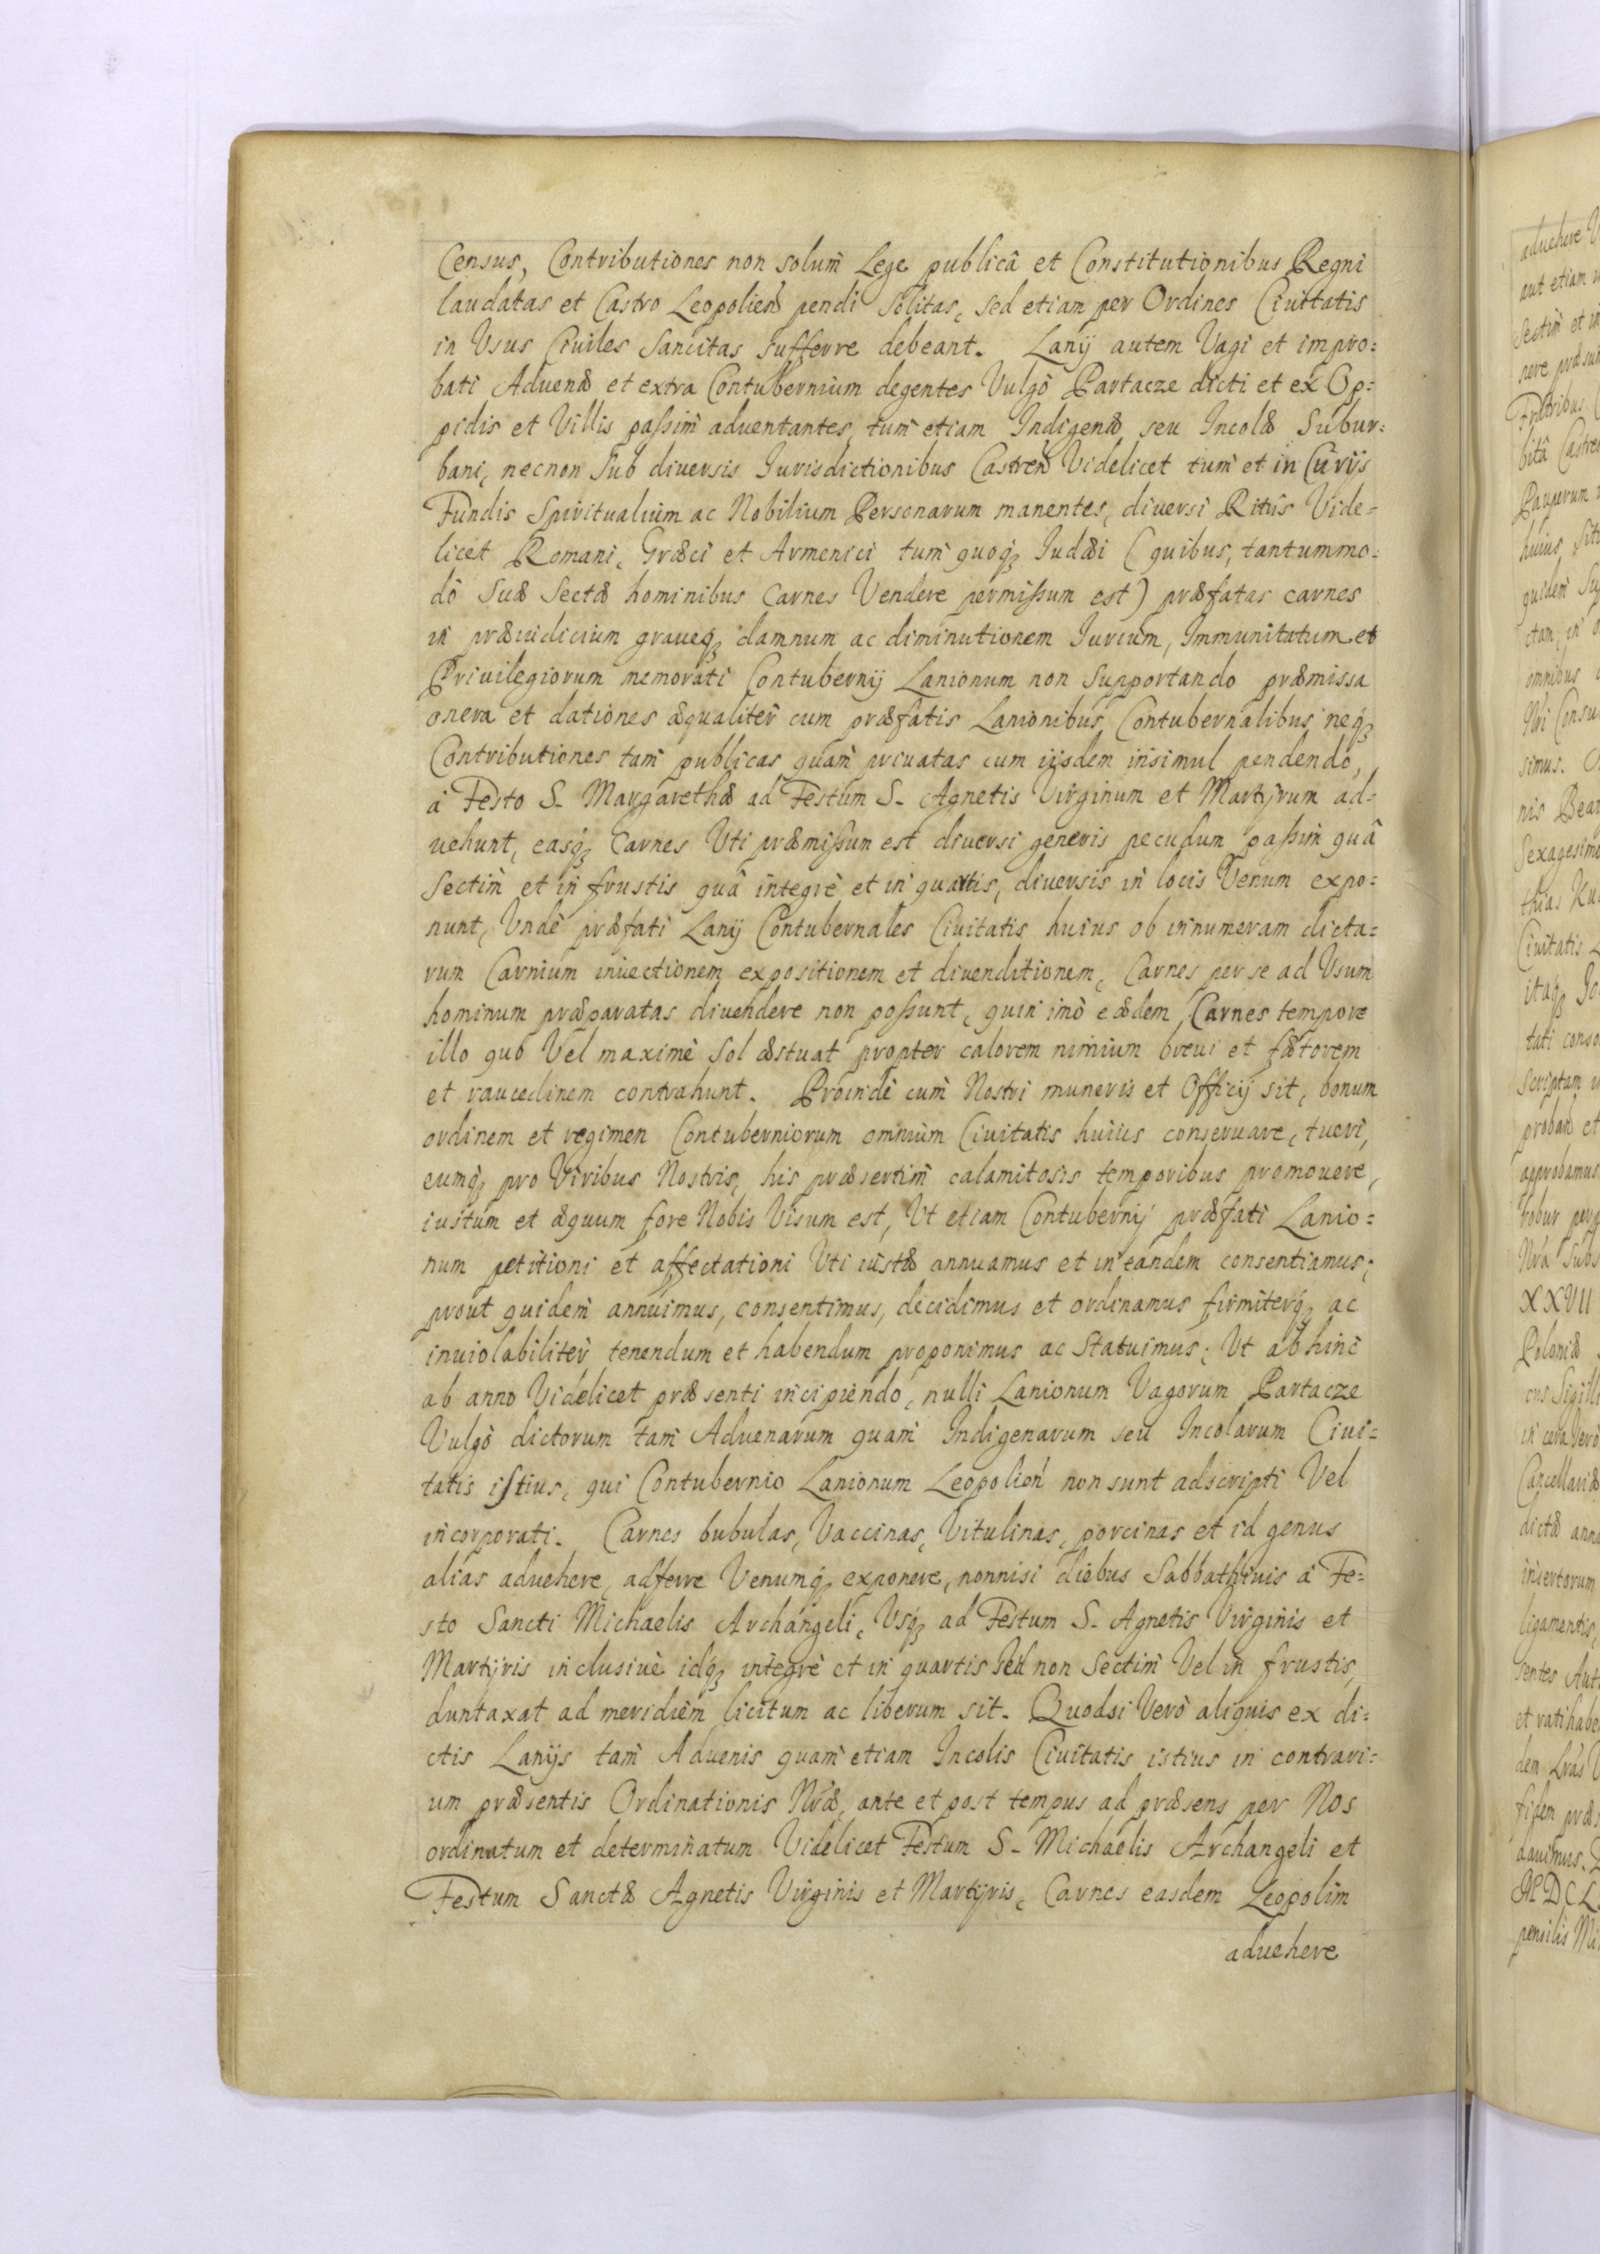 Census, Contributiones non solum̀ Lege publicâ et Constitutionibus Regni
laudatas et Castro Leopolień pendi solitas, sed etiam per Ordines Ciuitatis
in Vsus Ciuiles Sancitas sufferre debeant. Lanij autem Vagi et impro=
bati Aduenæ et extra Contubernium degentes Vulgò Partacze dicti et ex Op=
pidis et Villis paßim̀ aduentantes, tum̀ etiam Indigenæ seu Incolæ Subur=
bani, necnon sub diuersis Iurisdictionibus Castreń Videlicet tum̀ et in Curijs
Fundis Spiritualium ac Nobilium Personarum manentes, diuersi Ritûs Vide=
licet Romani, Græci et Armenici tum̀ quoq; Iudæi (quibus, tantummo=
dò Suæ Sectæ hominibus Carnes Vendere permißum est) præfatas carnes
in præiudicium graueq; damnum ac diminutionem Iurium, Immunitatum et
Priuilegiorum memorati Contubernij Lanionum non Supportando præmissa
onera et dationes æqualiter̀ cum præfatis Lanionibus Contubernalibus neq;
Contributiones tam̀ publicas quam̀ priuatas cum ijsdem insimul pendendo,
à Festo S. Margarethæ ad Festum S. Agnetis Virginum et Martyrum ad=
uehunt, easq; Carnes Vti præmißum est diuersi generis pecudum paßim quâ
Sectim̀ et in frustis quâ integrè et in quartis, diuersis in locis Venum expo=
nunt, Vndè præfati Lanij Contubernales Ciuitatis huius ob innumeram dicta=
rum Carnium inuectionem expositionem et diuenditionem, Carnes per se ad Vsum
hominum præparatas diuendere non poßunt, quin imò eædem Carnes tempore
illo quo Vel maximè Sol æstuat propter calorem nimium breui et fætorem
et raucedinem contrahunt. Proindè cum̀ Nostri muneris et Officij sit, bonum
ordinem et regimen Contuberniorum omnium Ciuitatis huius conseruare, tueri,
eumq; pro Viribus Nostris, his præsertim̀ calamitosis temporibus promouere,
iustum et æquum fore Nobis Visum est, Vt etiam Contubernij præfati Lanio=
num petitioni et affectationi Vti iustæ annuamus et in eandem consentiamus;
prout quidem̀ annuimus, consentimus, decidimus et ordinamus firmiterq; ac
inuiolabiliter̀ tenendum et habendum proponimus ac Statuimus; Vt ab hinc
ab anno Videlicet præsenti incipiendo, nulli Lanionum Vagorum Partacze
Vulgò dictorum tam̀ Aduenarum quam̀ Indigenarum seu Incolarum Ciui=
tatis istius, qui Contubernio Lanionum Leopolień non sunt adscripti Vel
incorporati. Carnes bubulas, Vaccinas, Vitulinas, porcinas et id genus
alias aduehere, adferre Venumq; exponere, nonnisi diebus Sabbathinis à Fe=
sto Sancti Michaelis Archangeli, Vsq; ad Festum S. Agnetis Virginis et
Martyris inclusiuè idq; integrè et in quartis sed non Sectim̀ Vel in frustis,
duntaxat ad meridiem licitum ac liberum sit. Quodsi Verò aliquis ex di=
ctis Lanijs tam̀ Aduenis quam̀ etiam Incolis Ciuitatis istius in contrari=
um præsentis Ordinationis Nræ, ante et post tempus ad præsens per Nos
ordinatum et determinatum Videlicet Festum S. Michaelis Archangeli et
Festum Sanctæ Agnetis Virginis et Martyris, Carnes easdem Leopolim
aduehere